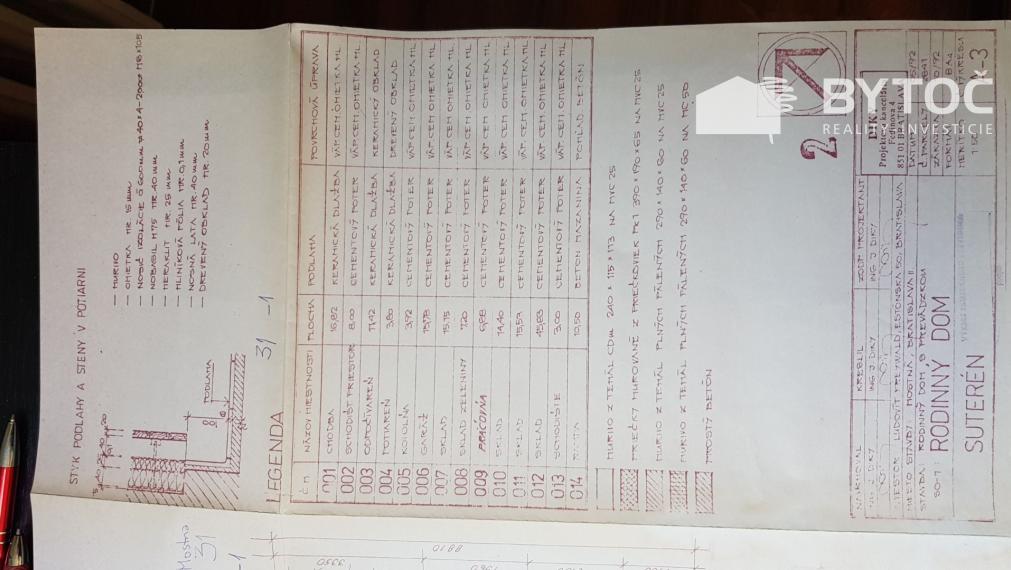 STYK PODLAHY A STENY V POTIARNI
MURIVO
OMIETKA HR. 15mm
NOBASIL M75 HR. 40 mm
HERAKLIT HR. 25 mm
HLINÍKOVÁ FÓLIA HR. 0,1mm
NOSNÁ LATA HR. 40mm
DREVENÝ OBKLAD HR. 20mm
PODLAHA
31 -1
LEGENDA
Č.M. NÁZOV MIESTNOSTI PLOCHA PODLAHA POVRCHOVÁ ÚPRAVA
001 CHODBA 16,82 KERAMICKÁ DLAŽBA VÁP. CEM. OMIETKA HL
002 SCHODIŠŤ. PRIESTOR 8,00 CEMENTOVÝ POTER VÁP. CEM. OMIETKA HL
003 17,42 KERAMICKÁ DLAŽBA KERAMICKÝ OBKLAD
004 POTIAREŇ 3,80 KERAMICKÁ DLAŽBA DREVENÝ OBKLAD
005 KOTOLŇA 3,92 CEMENTOVÝ POTER VÁP. CEM. OMIETKA HL
006 GARÁŽ CEMENTOVÝ POTER VÁP. CEM. OMIETKA HL
007 SKLAD 15,75 CEMENTOVÝ POTER VÁP. CEM. OMIETKA HL
008 SKLAD ZELENINY 7,20 CEMENTOVÝ POTER VÁP. CEM. OMIETKA HL
009 PRÁČOVŇA CEMENTOVÝ POTER VÁP. CEM OMIETKA HL
010 SKLAD 14,40 CEMENTOVÝ POTER VÁP. CEM. OMIETKA HL
011 SKLAD 15,59 CEMENTOVÝ POTER VÁP. CEM. OMIETKA HL
012 SKLAD 45,83 CEMENTOVÝ POTER VÁP. CEM. OMIETKA HL
013 SCHODIŠTE 3,00 CEMENTOVÝ POTER VÁP. CEM. OMIETKA HL
014 10,50 BETÓN. MAZANINA POHĽAD. BETÓN
MURIVO Z TEHÁL CDm 240 x 115 x 113 NA MVC 25
PRIEČKY MUROVANÉ Z PRIEČKOVIEK Pk1 290 x 190 x 65 NA MVC 25
MURIVO Z TEHÁL PLNÝCH PÁLENÝCH 290 x 140 x 60 NA MVC 25
MURIVO Z TEHÁL PLNÝCH PÁLENÝCH 290 x 140 x 60 NA MC 50
PROSTÝ BETÓN
2
BYTOČ
REALITY INVESTÍCIE
KRESLIL ZODP. PROJEKTANT
ING J. DIRY ING J. DIRY
Projektová kancelária
Fedinova 4
851 01 BRATISLAVA
MIESTO STAVBY: MOSTNÁ, BRATISLAVA II.
STAVBA: RODINNÝ DOM S PREVÁDZKOU
SO-1: RODINNÝ DOM
SUTERÉN
-3
Mostná
31
-1
8810
3350